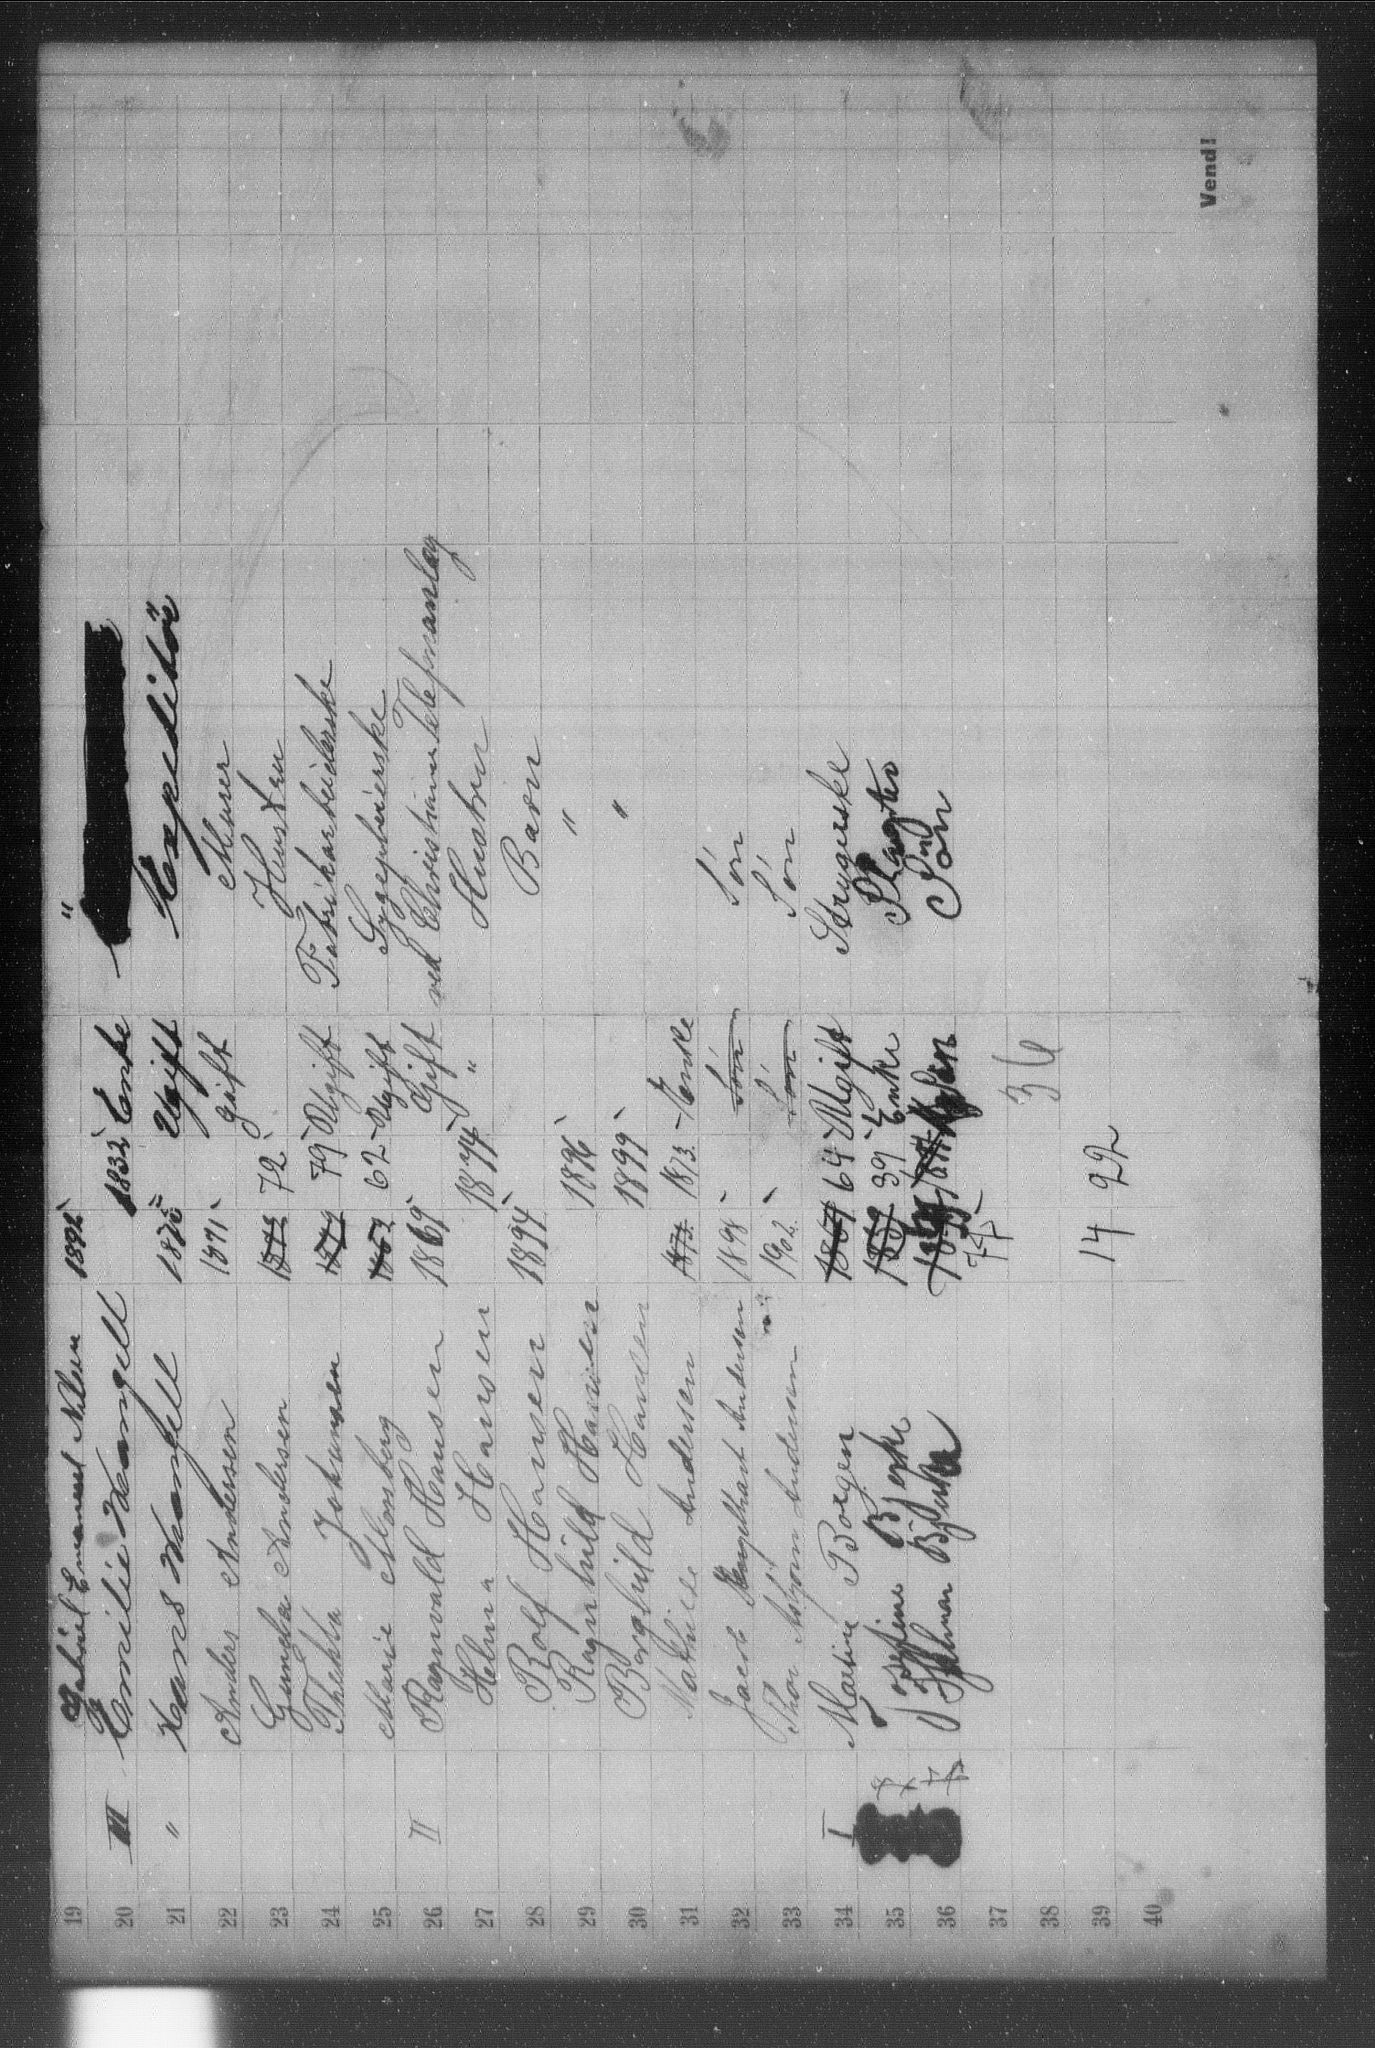 19 Gabriel Emanuel Nilsen 1892 "
20 III Emilie Wangell 1832 Enke
21 " Hans Wangell Ugift Expeditör
22 Anders Andersen 1871 gift Murer
23 Gunda Andersen 72 Hustru
24 Thekla Johansen 1879 79 Ugift Fabrikarbeiderske
25 Marie Monsberg 62 Ugift Sygepleierske
26 II Ragnvald Hansen 1869 Gift ved Christiania Telefonanlæg
27 Helma Hansen 1874 " Hustru
28 Rolf Hansen 1894 Barn
29 Ragnhild Hansen 1896 "
30 Borghild Hansen 1899 "
31 Mathilde Andersen 1873. 1873. Enke
32 Engelhart Andersen 1898 Søn Søn
33 Thor Asbjørn Andersen 1902. Søn Søn
34 I Martine Borgen 64 Ugift Strygerske
35 Josefine Bjerke 1839 39 Enke
36 Hjalmar Bjerke Søn
37 36
38
39 14 22
40
Vend!